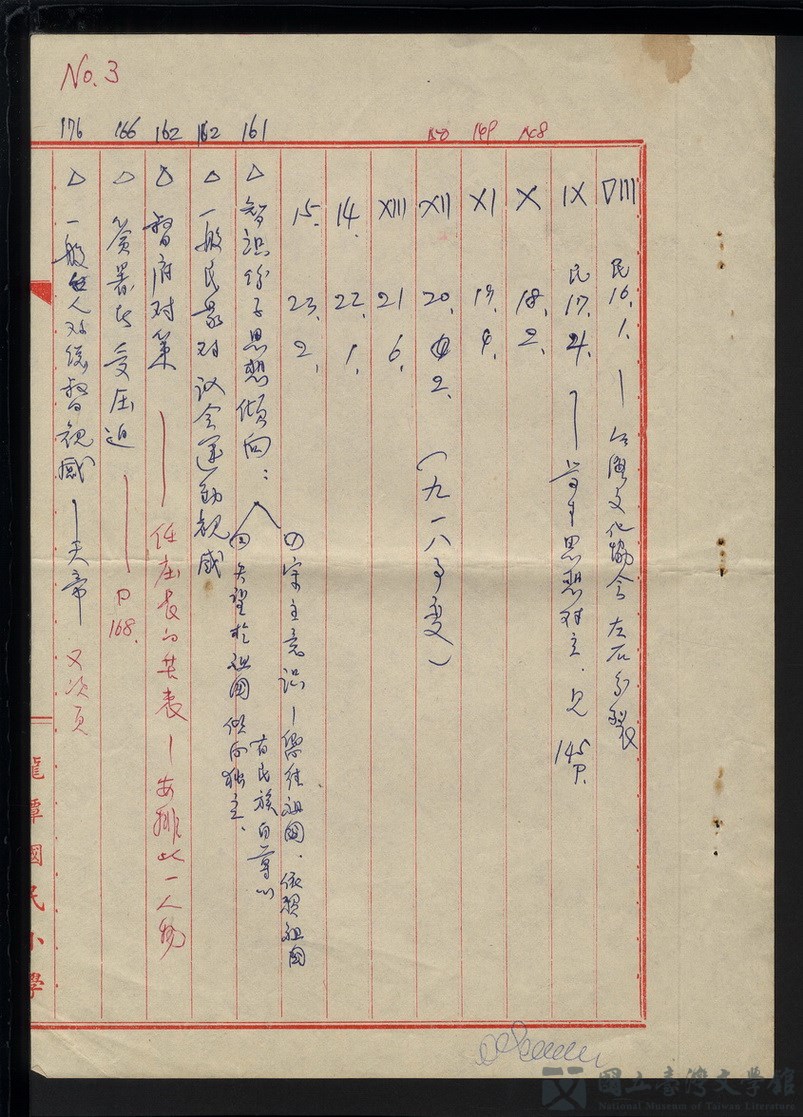 No. 3
VIII 民16. 1. — 台灣文化協会左右分裂
IX 民17. 4. — 思想对立. 見 145P.
148 X 18. 2.
149 XI 19.
150 XII 20. 2. (九一八事变)
XIII 21 6.
14. 22. 1.
15. 23. 2.
161 △ 智識份子思想傾向：
① 宗主意识—嚮往祖國. 依賴祖國
有民族自尊心
② 失望於祖國 傾向独立.
162 △ 一般民眾对议会運動観感
162 △ 督府对策 — 任庄長的其表—安排此一人物
166 △ 簽署者受压迫 — P168.
176 △ 一般台人对總督観感 — 天帝— 又次頁
龍潭國民小學
國立臺灣文學館
National Museum of Taiwan Literature